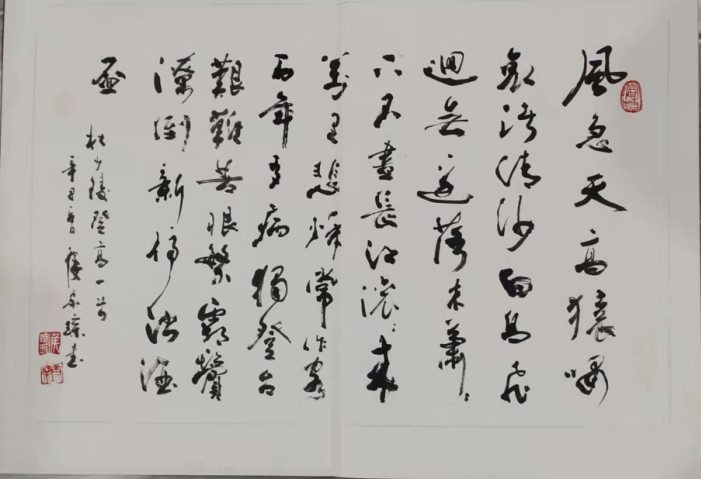 風急天高猿嘯
哀渚清沙白鳥飛
迴無邊落木蕭〻
下不盡長江滾〻来
萬里悲秋常作客
百年多病獨登台
艱難苦恨繁霜鬢
潦倒新停濁酒
盃
杜少陵登高一首
辛丑 書